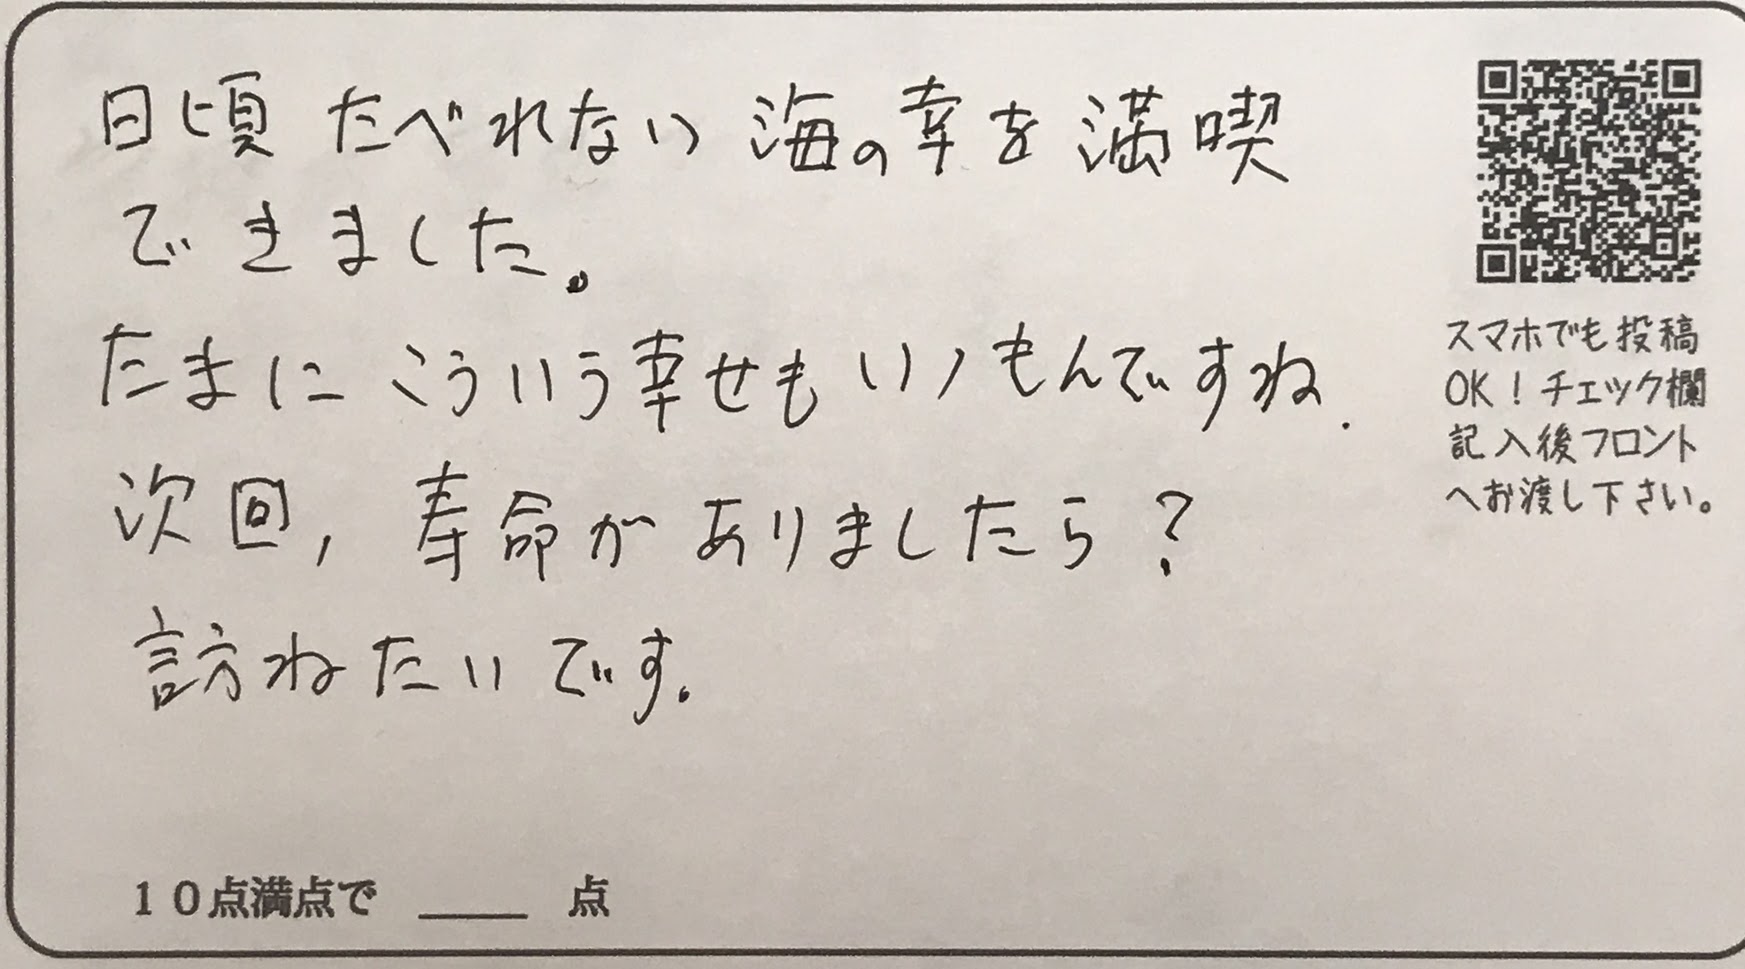 日頃 たべれない 海の幸を満喫
できました。
たまに こういう幸せも いいもんですね.
次回, 寿命が ありましたら?
訪ねたいです.
スマホでも投稿
OK!チェック欄
記入後フロント
へお渡し下さい。
10点満点で ____ 点